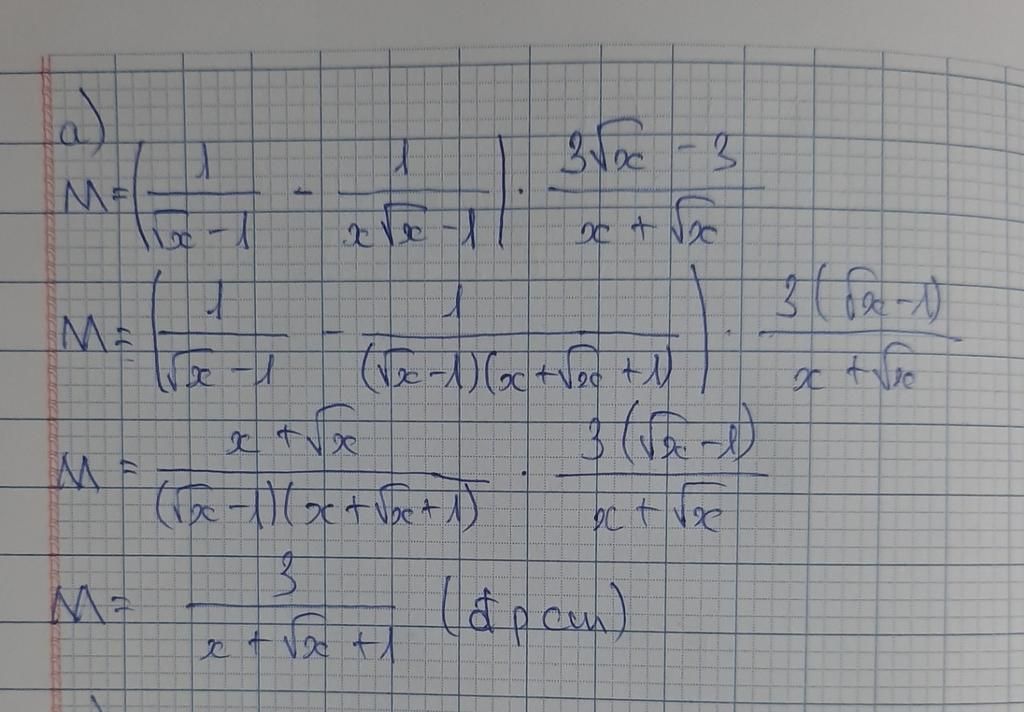 a)
M = (1/(√x - 1) - 1/(x√x - 1)) · (3√x - 3)/(x + √x)
M = (1/(√x - 1) - 1/((√x - 1)(x + √x + 1))) · 3(√x - 1)/(x + √x)
M = (x + √x)/((√x - 1)(x + √x + 1)) · 3(√x - 1)/(x + √x)
M = 3/(x + √x + 1) (đpcm)